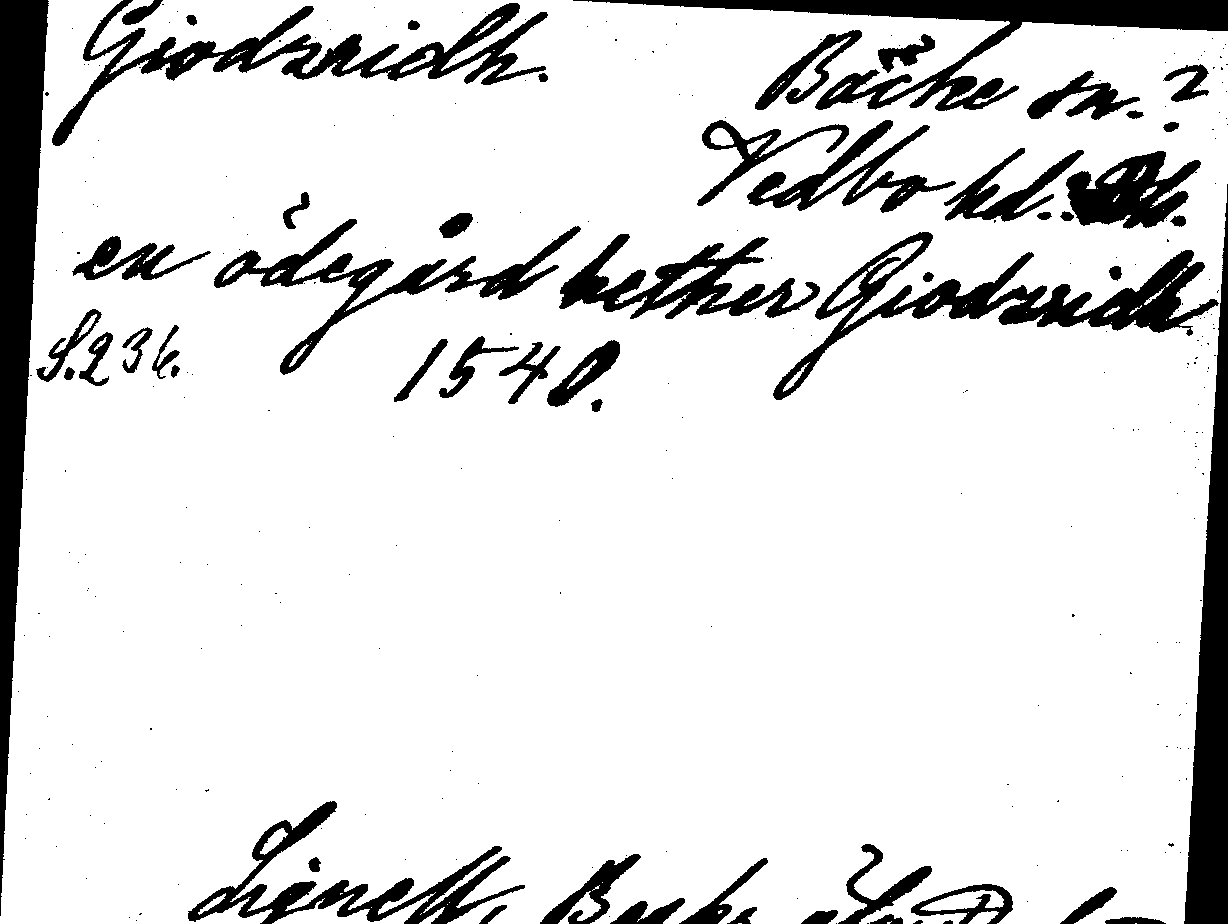 Giodzridh.
Bäcke sn.?
Vedbo hd.
en ödegård hether Giodzridh.
S.236. 1540.
Lignell, Beskr.